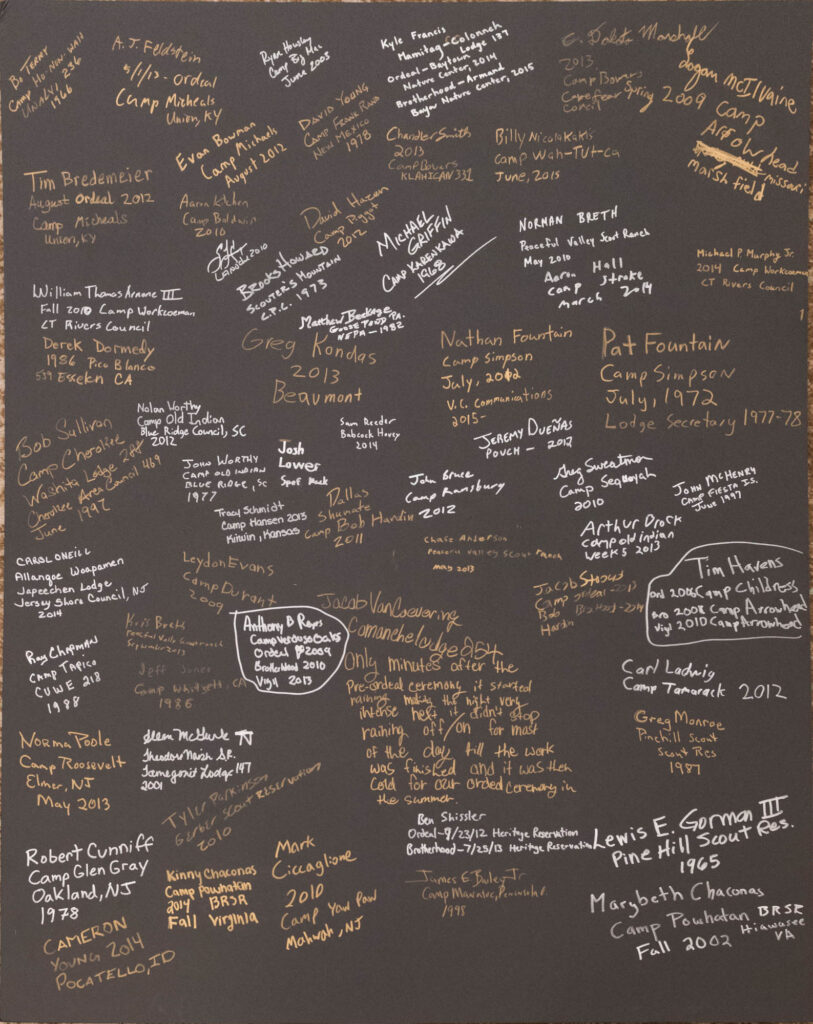 Bo Terry
Camp Ho-Non-Wah
Unalvi 236
1966
A.J. Feldstein
5/1/13 - Ordeal
Camp Micheals
Union, KY
Ryan Howley
June 2003
Kyle Francis
Mamitag-Colonneh
Lodge 137
Ordeal - Baytown
Nature Center, 2014
Brotherhood - Armand
Bayou Nature Center, 2015
Marshall
2013
Camp Bowers
Cape fear Spring 2009
Concil
Logan McIlvaine
Camp
Arrowhead
Missouri
Marshfield
Evan Bowman
Camp Michaels
August 2012
David Young
Camp Frank Rand
New Mexico
1978
Chandler Smith
2013
Camp Bowers
KLAHICAN 331
Billy Nicolakakis
Camp Wah-Tut-ca
June, 2015
Tim Bredemeier
August Ordeal 2012
Camp Micheals
Union, KY
Aaron Kitchen
Camp Baldwin
2010
David Hazen
Camp Piggott
2012
2010
Brooks Howard
Scouter's Mountain
C.P.C. 1973
MICHAEL
GRIFFIN
CAMP KARANKAWA
1968
NORMAN BRETH
Peaceful Valley Scout Ranch
May 2010
Aaron Hall
Camp Stroke
March 2014
Michael P. Murphy Jr.
2014 Camp Workcoeman
CT Rivers Council
William Thomas Arnone III
Fall 2010 Camp Workcoeman
CT Rivers Council
Matthew Beckage
Goose Pond PA.
NEPA - 1982
Derek Dormedy
1986 Pico Blanco
539 Esselen CA
Greg Kondas
2013
Beaumont
Nathan Fountain
Camp Simpson
July, 2012
V.C. Communications
2015-
Pat Fountain
Camp Simpson
July, 1972
Lodge Secretary 1977-78
Bob Sullivan
Camp Cherokee
Washita Lodge 288
Cherokee Area Council 469
June 1992
Nolan Worthy
Camp Old Indian
Blue Ridge Council, SC
2012
Sam Reeder
Babcock Hovey
2014
JEREMY DUEÑAS
POUCH - 2012
John Worthy
Camp Old Indian
Blue Ridge, SC
1977
Josh
Lowes
John Bruce
Camp Ransbury
2012
Greg Sweatmon
Camp Sequoyah
2010
John McHenry
Camp Fiesta Is.
June 1997
Tracy Schmidt
Camp Hansen 2013
Kirwin, Kansas
Dallas
Shumate
Camp Bob Hardin
2011
Chase Anderson
Peaceful Valley Scout Ranch
May 2013
Arthur Drock
Camp old indian
week 5 2013
CAROL ONEILL
Allangoe Woapamen
Japeechen Lodge
Jersey Shore Council, NJ
2014
Leydon Evans
Camp Durant
2009
Jacob Stroud
Camp Ordeal-2013
Bob
Hardin
Tim Havens
Ord 2006 Camp Childress
Bro 2008 Camp Arrowhead
Vigil 2010 Camp Arrowhead
Kris Breth
Peaceful Valley Scout Ranch
September 2013
Anthony B Reyes
Camp Verdugo Oaks
Ordeal 2009
Brotherhood 2010
Vigil 2013
Jacob VanCoevering
Comanche Lodge 254
Only minutes after the
Pre-ordeal ceremony it started
raining making the night very
intense next it didn't stop
raining off/on for most
of the day till the work
was finished and it was then
cold for our ordeal ceremony in
the summer.
Ray Chapman
Camp Tapico
CUWE 218
1988
Jeff Jones
Camp Whitsett, CA
1986
Carl Ladwig
Camp Tamarack 2012
Norma Poole
Camp Roosevelt
Elmer, NJ
May 2013
Theodore Naish S.R.
Tamegonit Lodge 147
2001
Greg Monroe
Pinehill Scout
Scout Res
1987
Tyler Parkinson
Gerber Scout Reservation
2010
Ben Shissler
Ordeal - 9/23/12 Heritage Reservation
Brotherhood - 7/25/13 Heritage Reservation
Lewis E. Gorman III
Pine Hill Scout Res.
1965
Robert Cunniff
Camp Glen Gray
Oakland, NJ
1978
Kinny Chaconas
Camp Powhatan
2014 BRSR
Fall Virginia
Mark
Ciccaglione
2010
Camp Yaw Paw
Mahwah, NJ
James E. Bailey Jr
1995
Marybeth Chaconas
Camp Powhatan BRSR
Hiawasee
Fall 2002 VA
CAMERON
YOUNG 2014
POCATELLO, ID